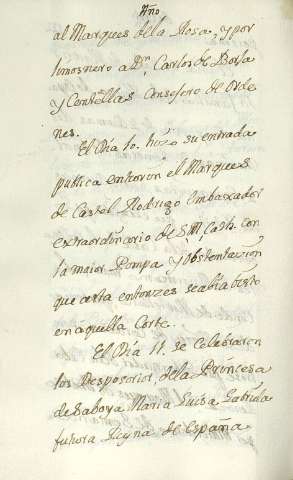 Año
al Marques dela Rosa, y por
limosnero a Dn Carlos de Borja
y Centellas Consejero de Orde
nes.
El Dia 10. hizo su entrada
publica enturin el Marques
de Castel Rodrigo Embaxador
extraordinario de S.M. Cath. con
la maior Pompa y obstentacion
que asta entonzes seabia bisto
en aquella Corte.
El Dia 11. se Celebraron
los Desposorios dela Princesa
de Saboya Maria Luisa Gabriela
futura Reyna de España